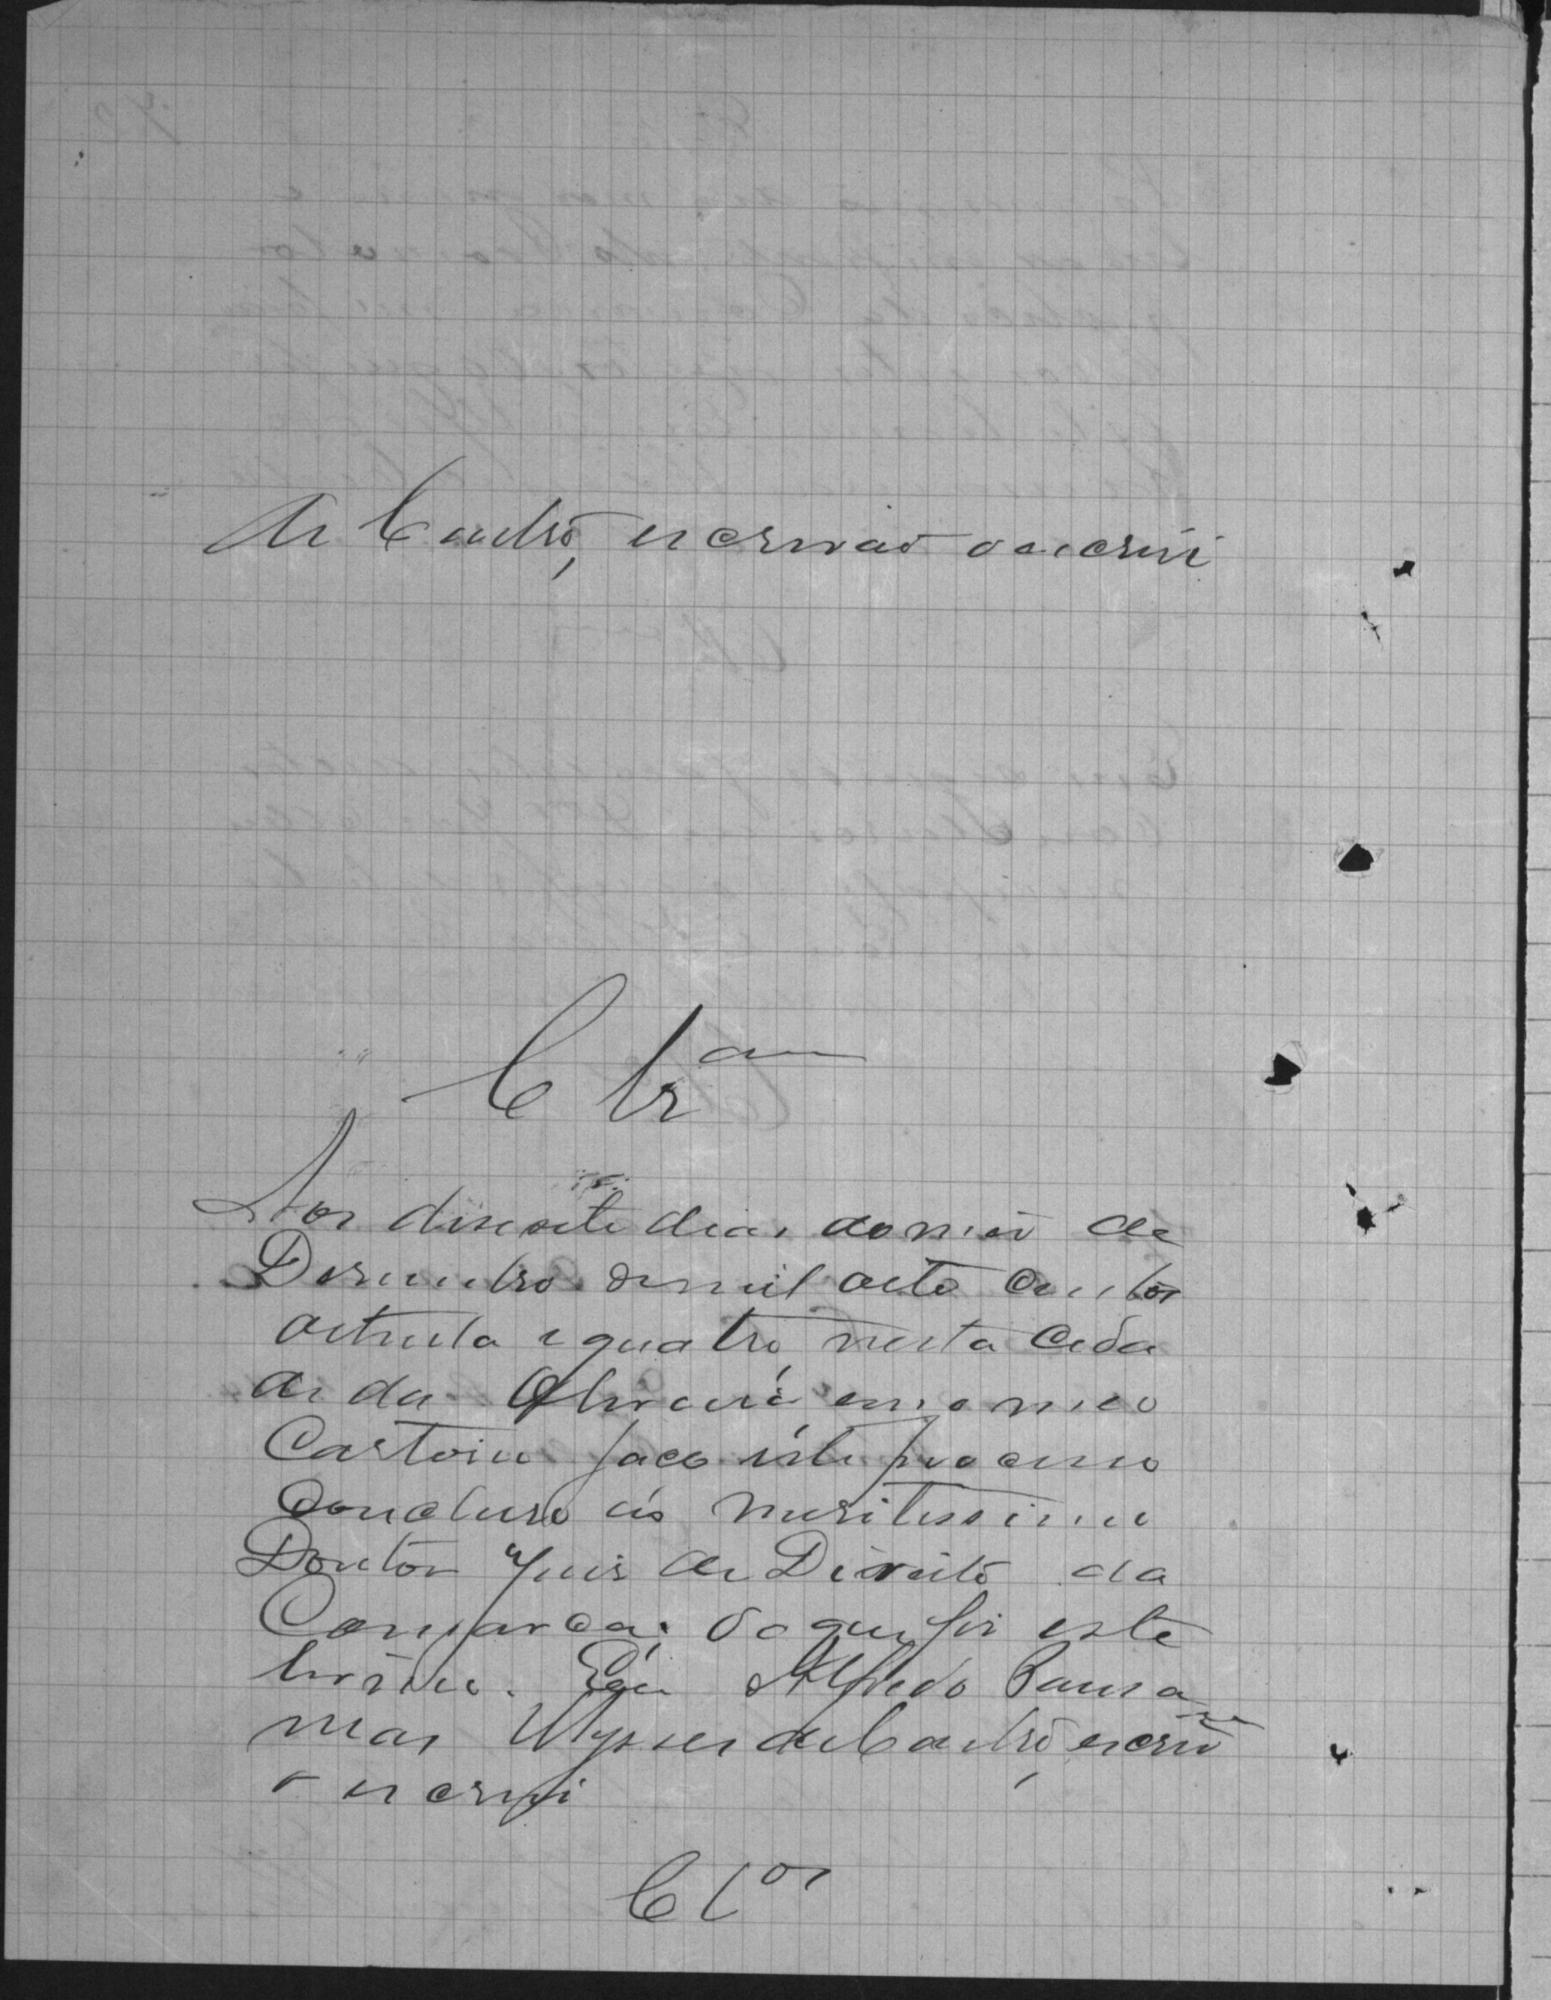 de Castro, escrivão o escrevi
Clsam
Aos disesete dias do mes de
Desembro de mil oito centos
oitenta e quatro, nesta Cida
de da Oliveira, em o meo
Cartorio faco este processo
Concluso ao meritissimo
Doutor Juis de Direito da
Comarca; do que fis este
termo. Eu Alfredo Pausa
nias Ulysses de Castro, escrivam
o escrevi
Clos